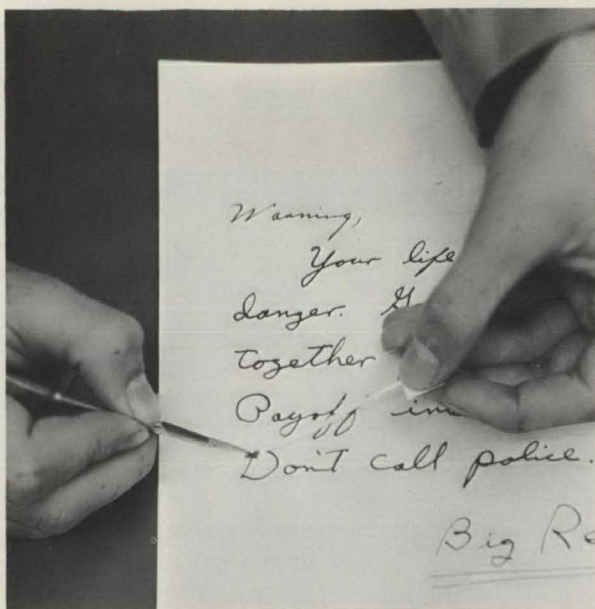 Warning,
Your life
danger.
together
Payoff
Don't call police.
Big